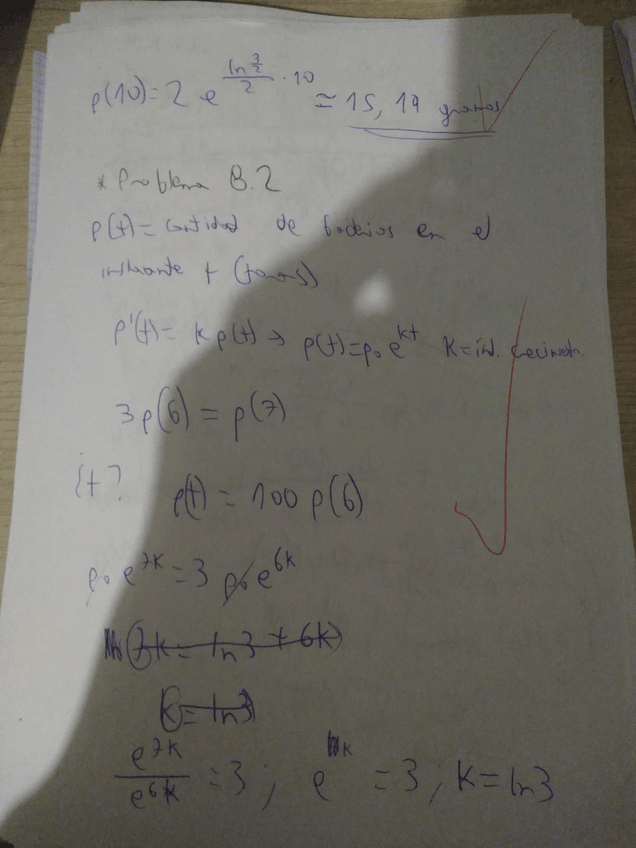 p(10) = 2 e^{\frac{ln \frac{3}{2}}{2} \cdot 10} ≃ 15,19 gramos
* Problema B.2
p(t) = cantidad de bacterias en el
instante t (horas)
p'(t) = k p(t) → p(t) = p₀ e^{kt} K = ind. crecimiento.
3p(6) = p(7)
¿t? p(t) = 100 p(6)
p₀ e^{7k} = 3 p₀ e^{6k}
7k = ln3 + 6k
k = ln3
\frac{e^{7k}}{e^{6k}} = 3 ; e^{k} = 3 ; K = ln3